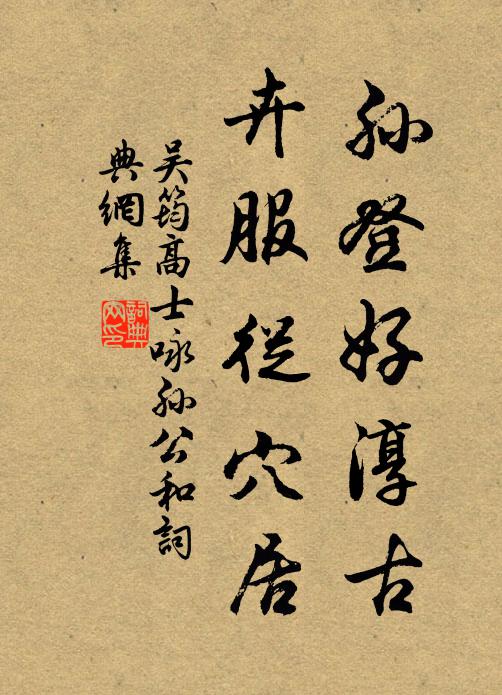 孙登好淳古
卉服從穴居
吴筠高士咏孙公和詞
典網集
詞典网印